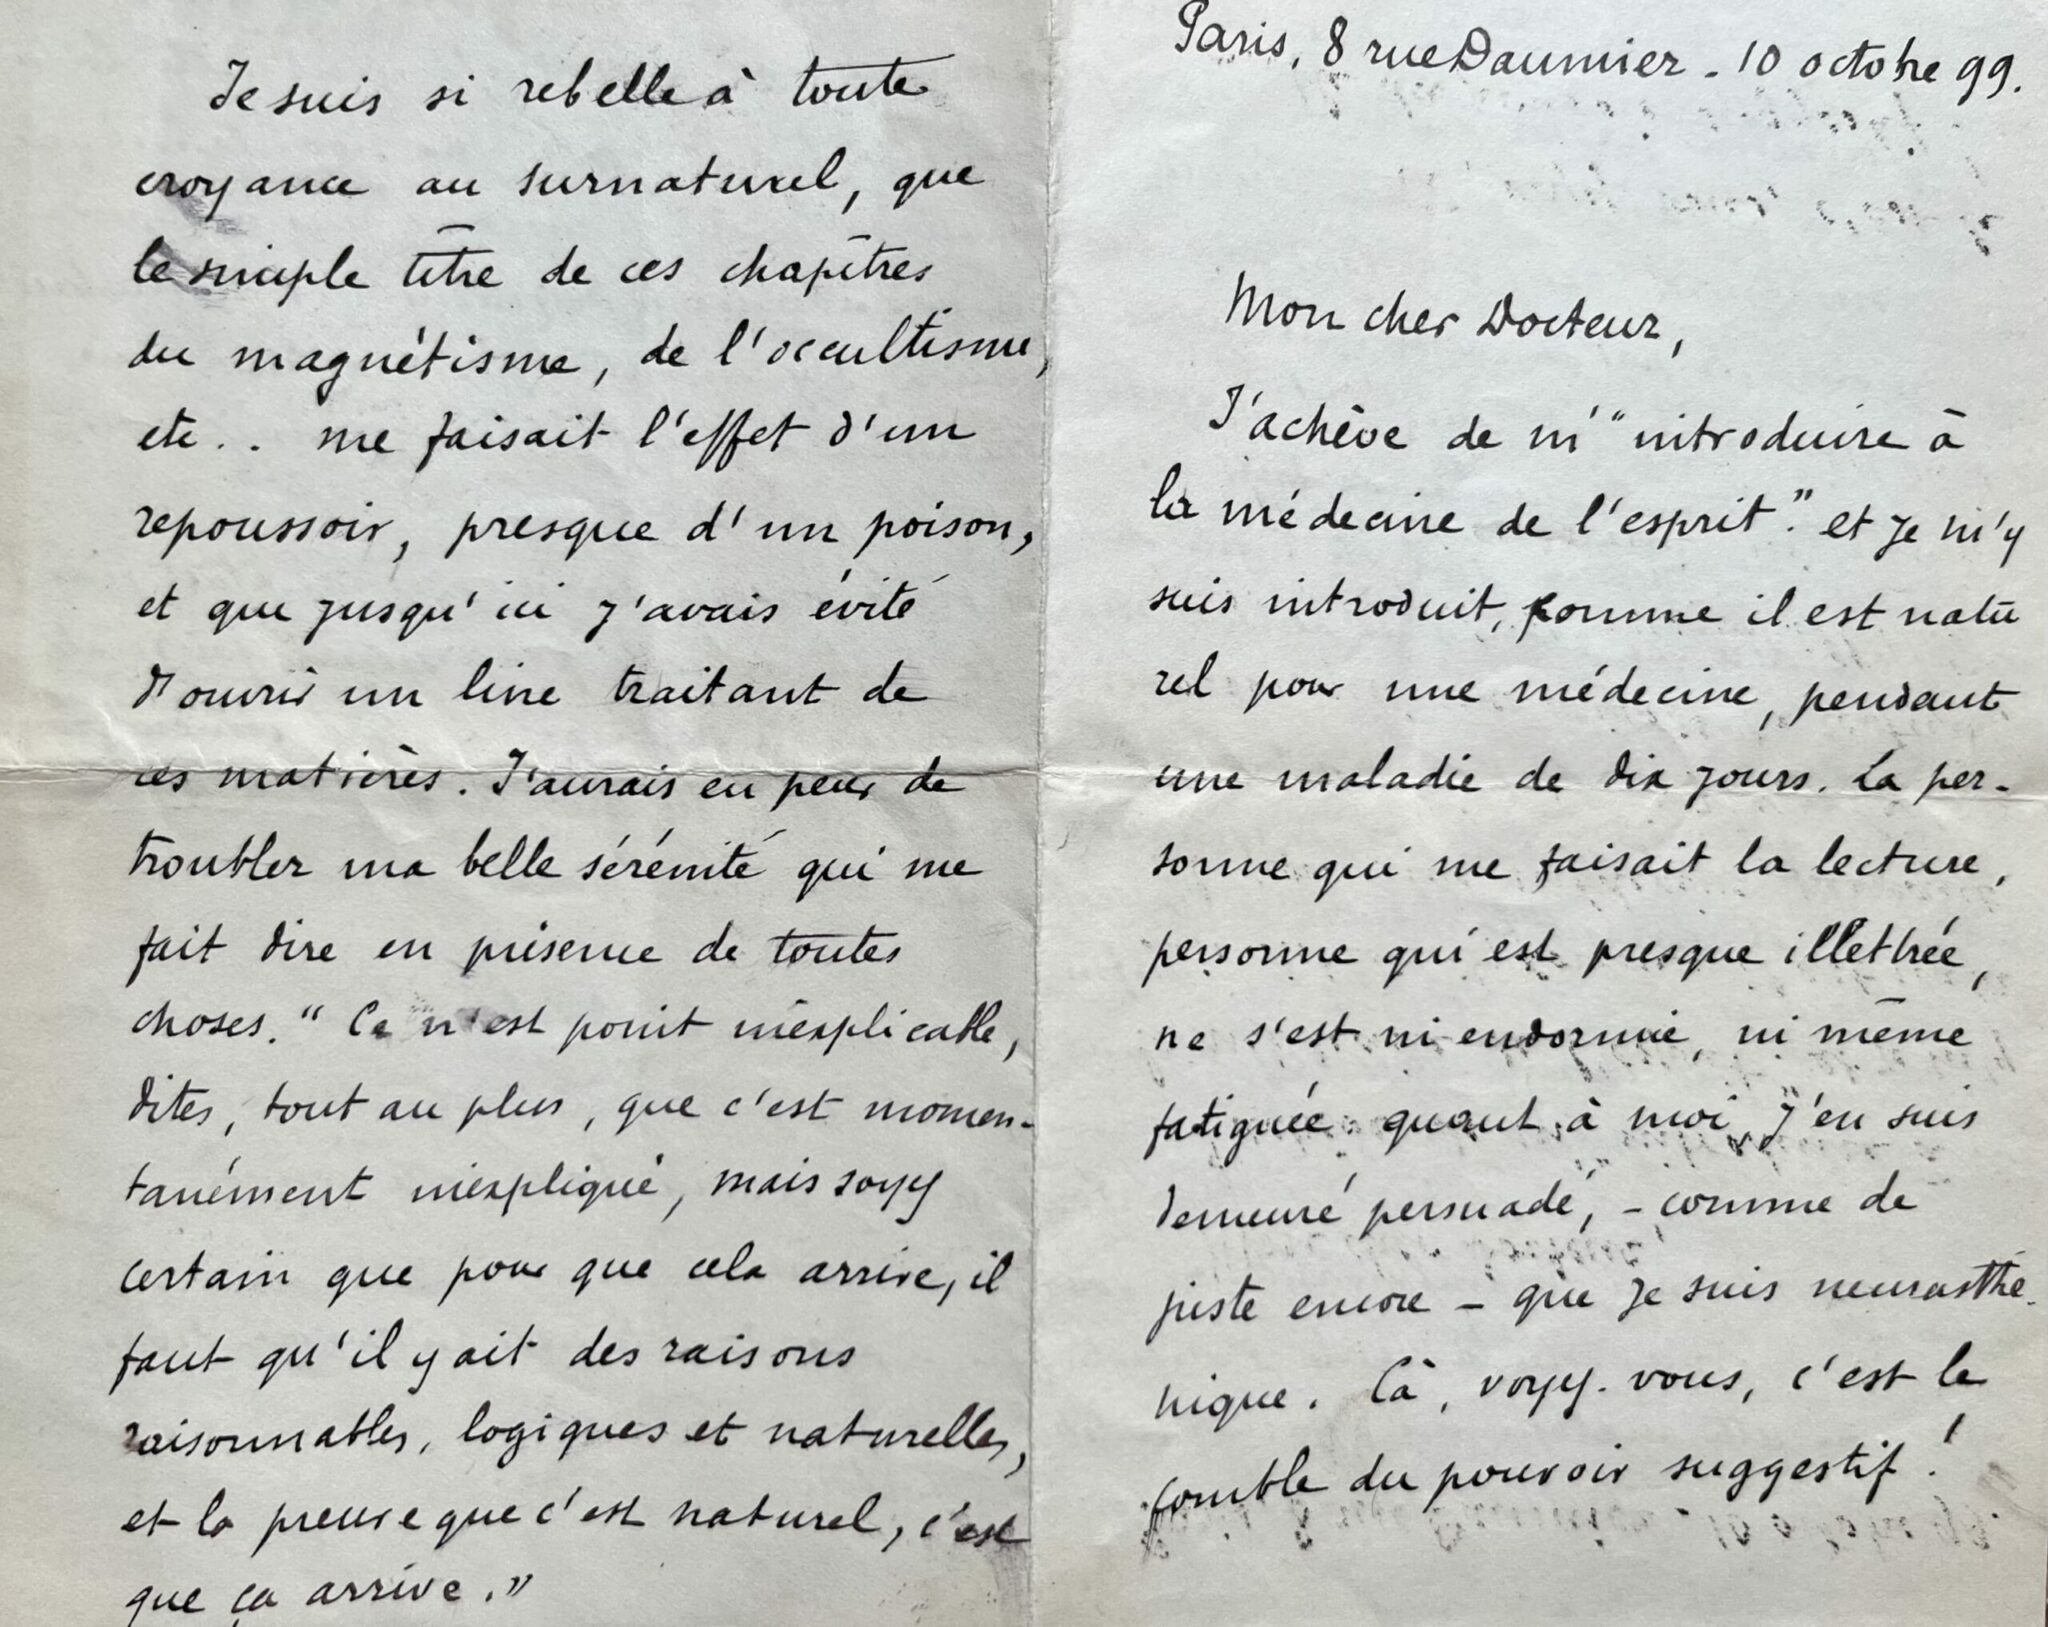 Paris, 8 rue Daumier - 10 octobre 99.
Mon cher Docteur,
J'achève de m'"introduire à
la médecine de l'esprit" et je m'y
suis introduit, comme il est natu
rel pour une médecine, pendant
une maladie de dix jours. La per-
sonne qui me faisait la lecture,
personne qui est presque illettrée,
ne s'est ni endormie, ni même
fatiguée. quant à moi, j'en suis
demeuré persuadé, - comme de
juste encore - que je suis neurasthé-
nique. Cà, voyez-vous, c'est le
comble du pouvoir suggestif!
Je suis si rebelle à toute
croyance au surnaturel, que
le simple titre de ces chapîtres
du magnétisme, de l'occultisme,
etc.. me faisait l'effet d'un
repoussoir, presque d'un poison,
et que jusqu'ici j'avais évité
d'ouvrir un livre traitant de
ces matières. J'aurais eu peur de
troubler ma belle sérénité qui me
fait dire en présence de toutes
choses. "Ce n'est point inexplicable,
dites, tout au plus, que c'est momen-
tanément inexpliqué, mais soyez
certain que pour que cela arrive, il
faut qu'il y ait des raisons
raisonnables, logiques et naturelles,
et la preuve que c'est naturel, c'est
que ça arrive."